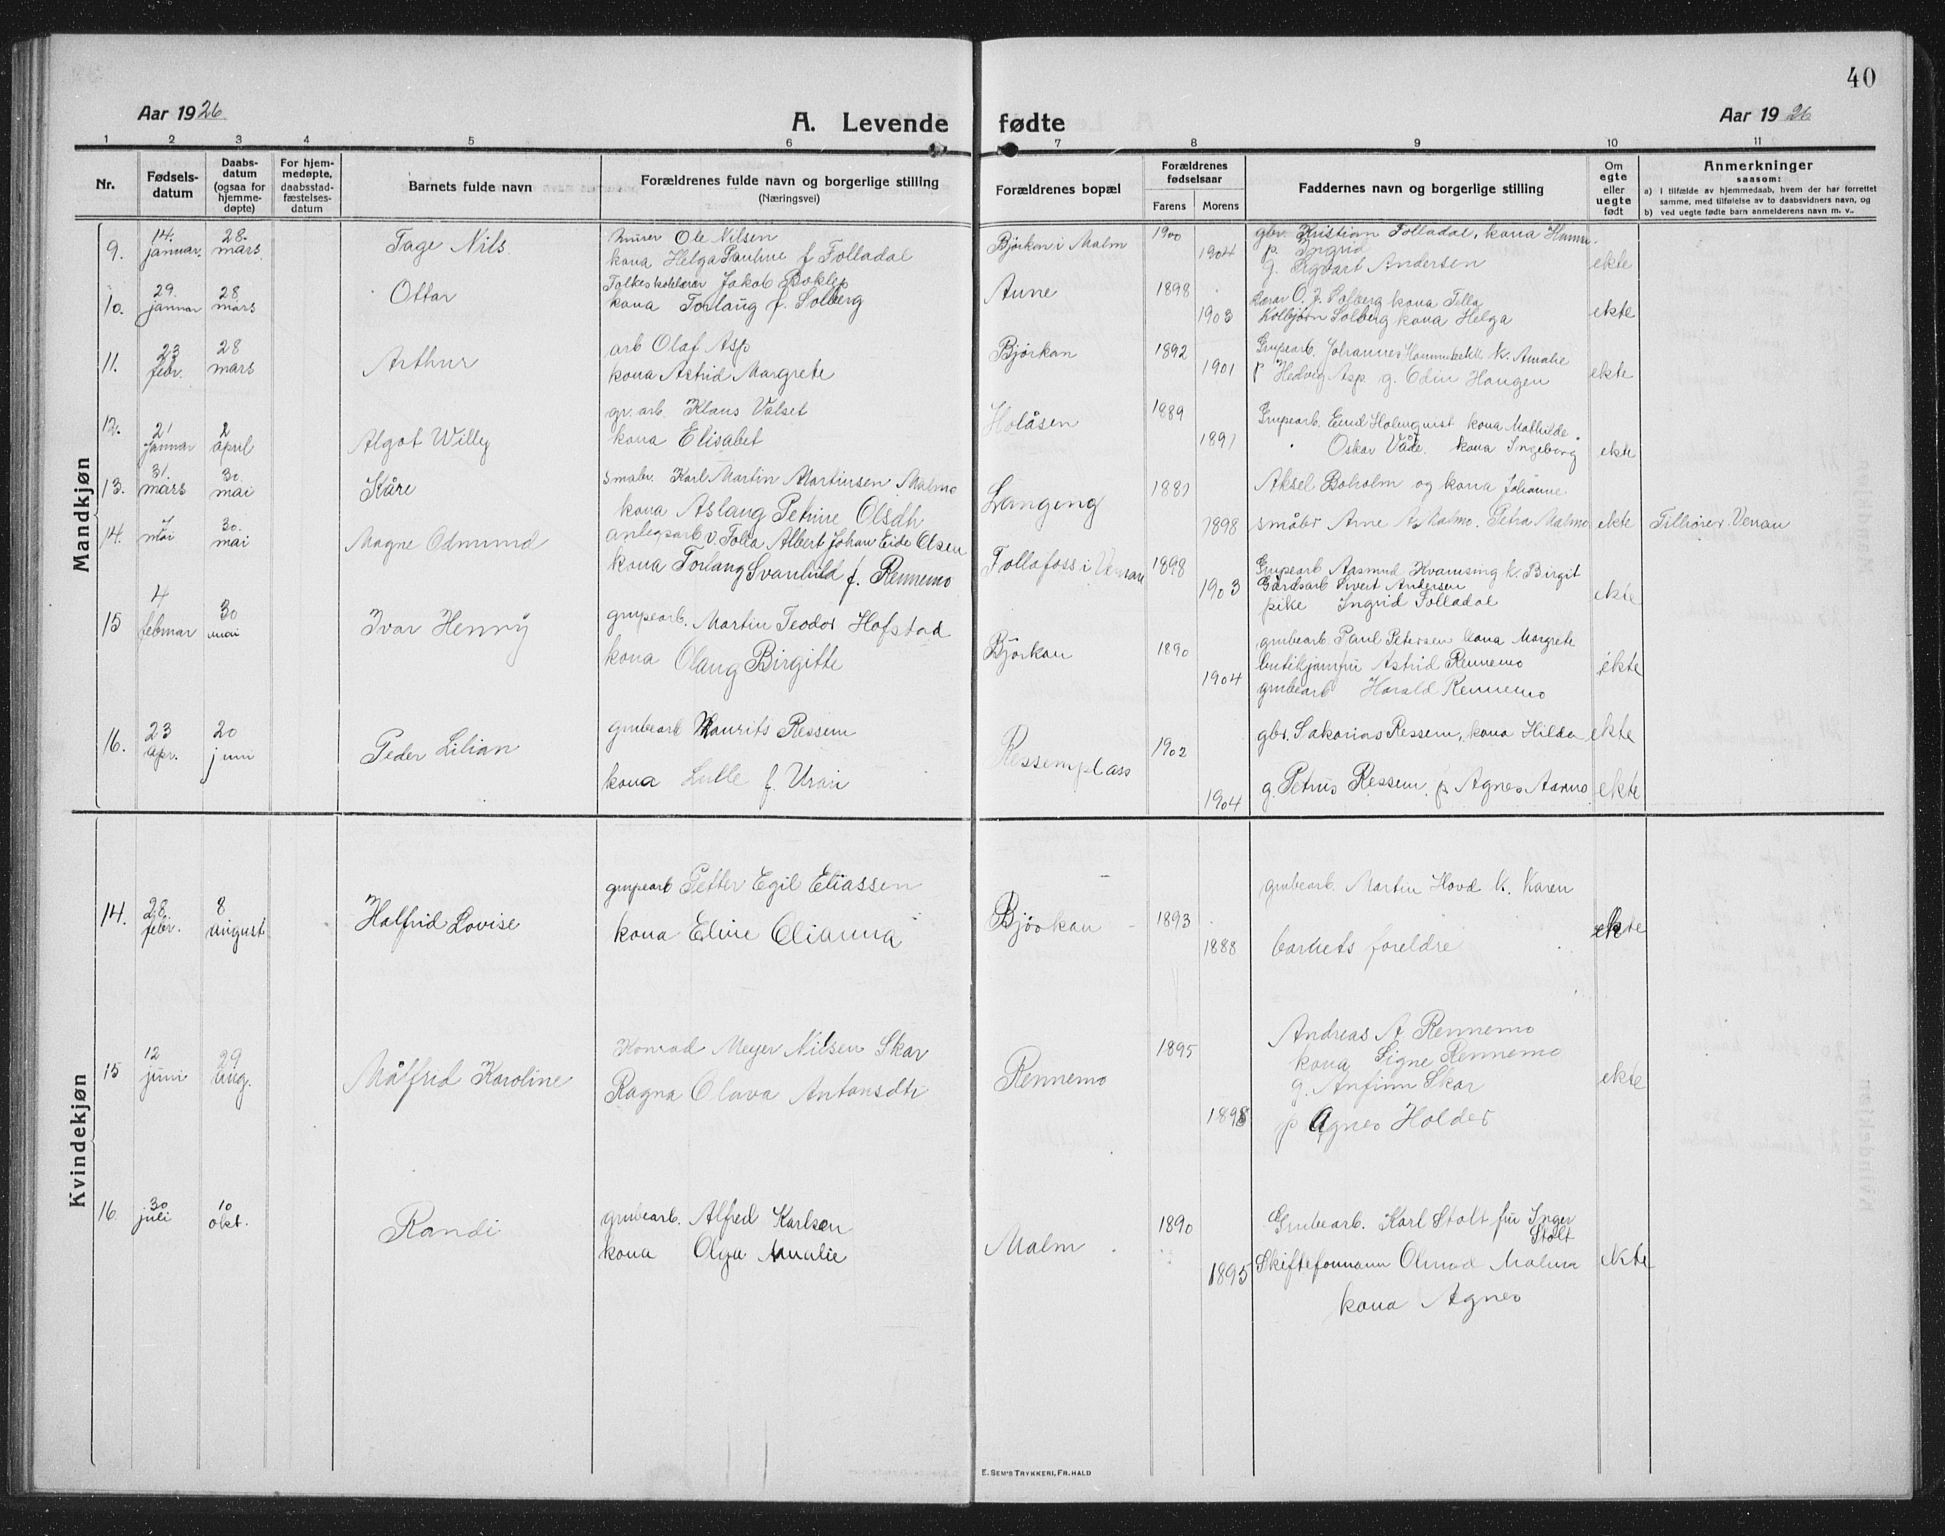 40
Aar 1926
A. Levende fødte
Aar 1926
1 2 3 4 5 6 7 8 9 10 11
Nr.
Fødsels-datum
Daabs-datum (ogsaa for hjemme-døpte)
For hjem-medøpte, daabsstad-fæstelses-datum
Barnets fulde navn
Forældrenes fulde navn og borgerlige stilling
(Næringsvei)
Forældrenes bopæl
Forældrenes fødselsaar
Farens Morens
Faddernes navn og borgerlige stilling
Om egte eller uegte født
Anmerkninger
saasom:
a) I tilfælde av hjemmedaab, hvem der har forrettet samme, med tilføielse av to daabsvidners navn, og
b) ved uegte fødte barn anmelderens navn m. v..
Mandkjøn
9. 14. januar 28. mars Tage Nils
murer Ole Nilsen
kona Helga Pauline f. Folladal
Bjørkan i Malm 1900 1904
gbr. Kristian Folladal, kona Hanna.
p. Ingrid
g. Sigvart Andersen
ekte
10. 29. januar 28 mars Ottar
Folkeskolelærer Jakob Boklep
kona Torlaug f. Solberg
Aune 1898 1903
Lærar O. J. Solberg kona Tilla
Kolbjørn Solberg kona Helga
ekte
11. 23 febr. 28 mars Arthur
arb Olaf Asp
kona Astrid Margrete
Bjørkan 1892 1901
Grupearb. Johannes k. Amalie
p Hedvig Asp. g. Odin Haugen
ekte
12. 21 januar 2 april Algot Willy
gr. arb. Klaus Valset
kona Elisabet
Holåsen 1889 1891
Grupearb. Emil Holmquist kona Mathilde
" Oskar Våde. kona Ingeborg
ekte
13. 31. mars 30 mai Kåre
småbr. Karl Martin Martinsen Malmo
kona Aslaug Petrine Olsdh
Langeng 1881 1898
Aksel Boholm og kona Johanne
småbr Arne A Malmo. Petra Malmo
ekte
14. 7 mai 30. mai Magne Odmund
anlegsarb v. Folla Albert Johan Eide Olsen
kona Torlaug Svanhild f. Rennemo
Follafoss i Verran 1898 1903
Grupearb Aasmund Kvamsing k. Birgit
Gårdsarb Sivert Andersen
pike Ingrid Folladal
ekte
Tilhører Verran
15 4 februar 30 mai Ivar Henry
grupearb. Martin Teodor Hofstad
kona Olaug Birgitte
Bjørkan 1890 1904
grubearb Paul Petersen kona Margrete
butikjomfru Astrid Rennemo
grubearb Harald Rennemo
ekte
16. 23 apr. 20 juni Peder Lilian
grubearb Maurits Ressem
kona Lulle f.
Ressemplass 1902 1904
gbr. Sakarias Ressem, kona Hilda ekte
g. Petrus Ressem. p Agnes Aarmo ekte
Kvindekjøn
14. 28. febr. 8 august Halfrid Lovise
grupearb Petter Egil Eliassen
kona Eline Olianna
Bjørkan 1893 1888
grubearb. Martin Hovd k. Karen
barnets foreldre
ekte
15 12 juni 29 aug. Målfrid Karoline
Konrad Meyer Nilsen Skar
Ragna Olava Antonsdtr
Rennemo 1895 1898
Andreas A. Rennemo
kona Signe Rennemo
g. Anfinn Skar
p Agnes Holder
ekte
16 30 juli 10 okt. Randi
grubearb. Alfred Karlsen
kona Olga Amalie
Malm 1890 1895
Grubearb. Karl Stolt fru Inger
Stolt
Skifteformann Olmod Malmo
kona Agnes
ekte
E. SEM'S TRYKKERI, FR. HALD